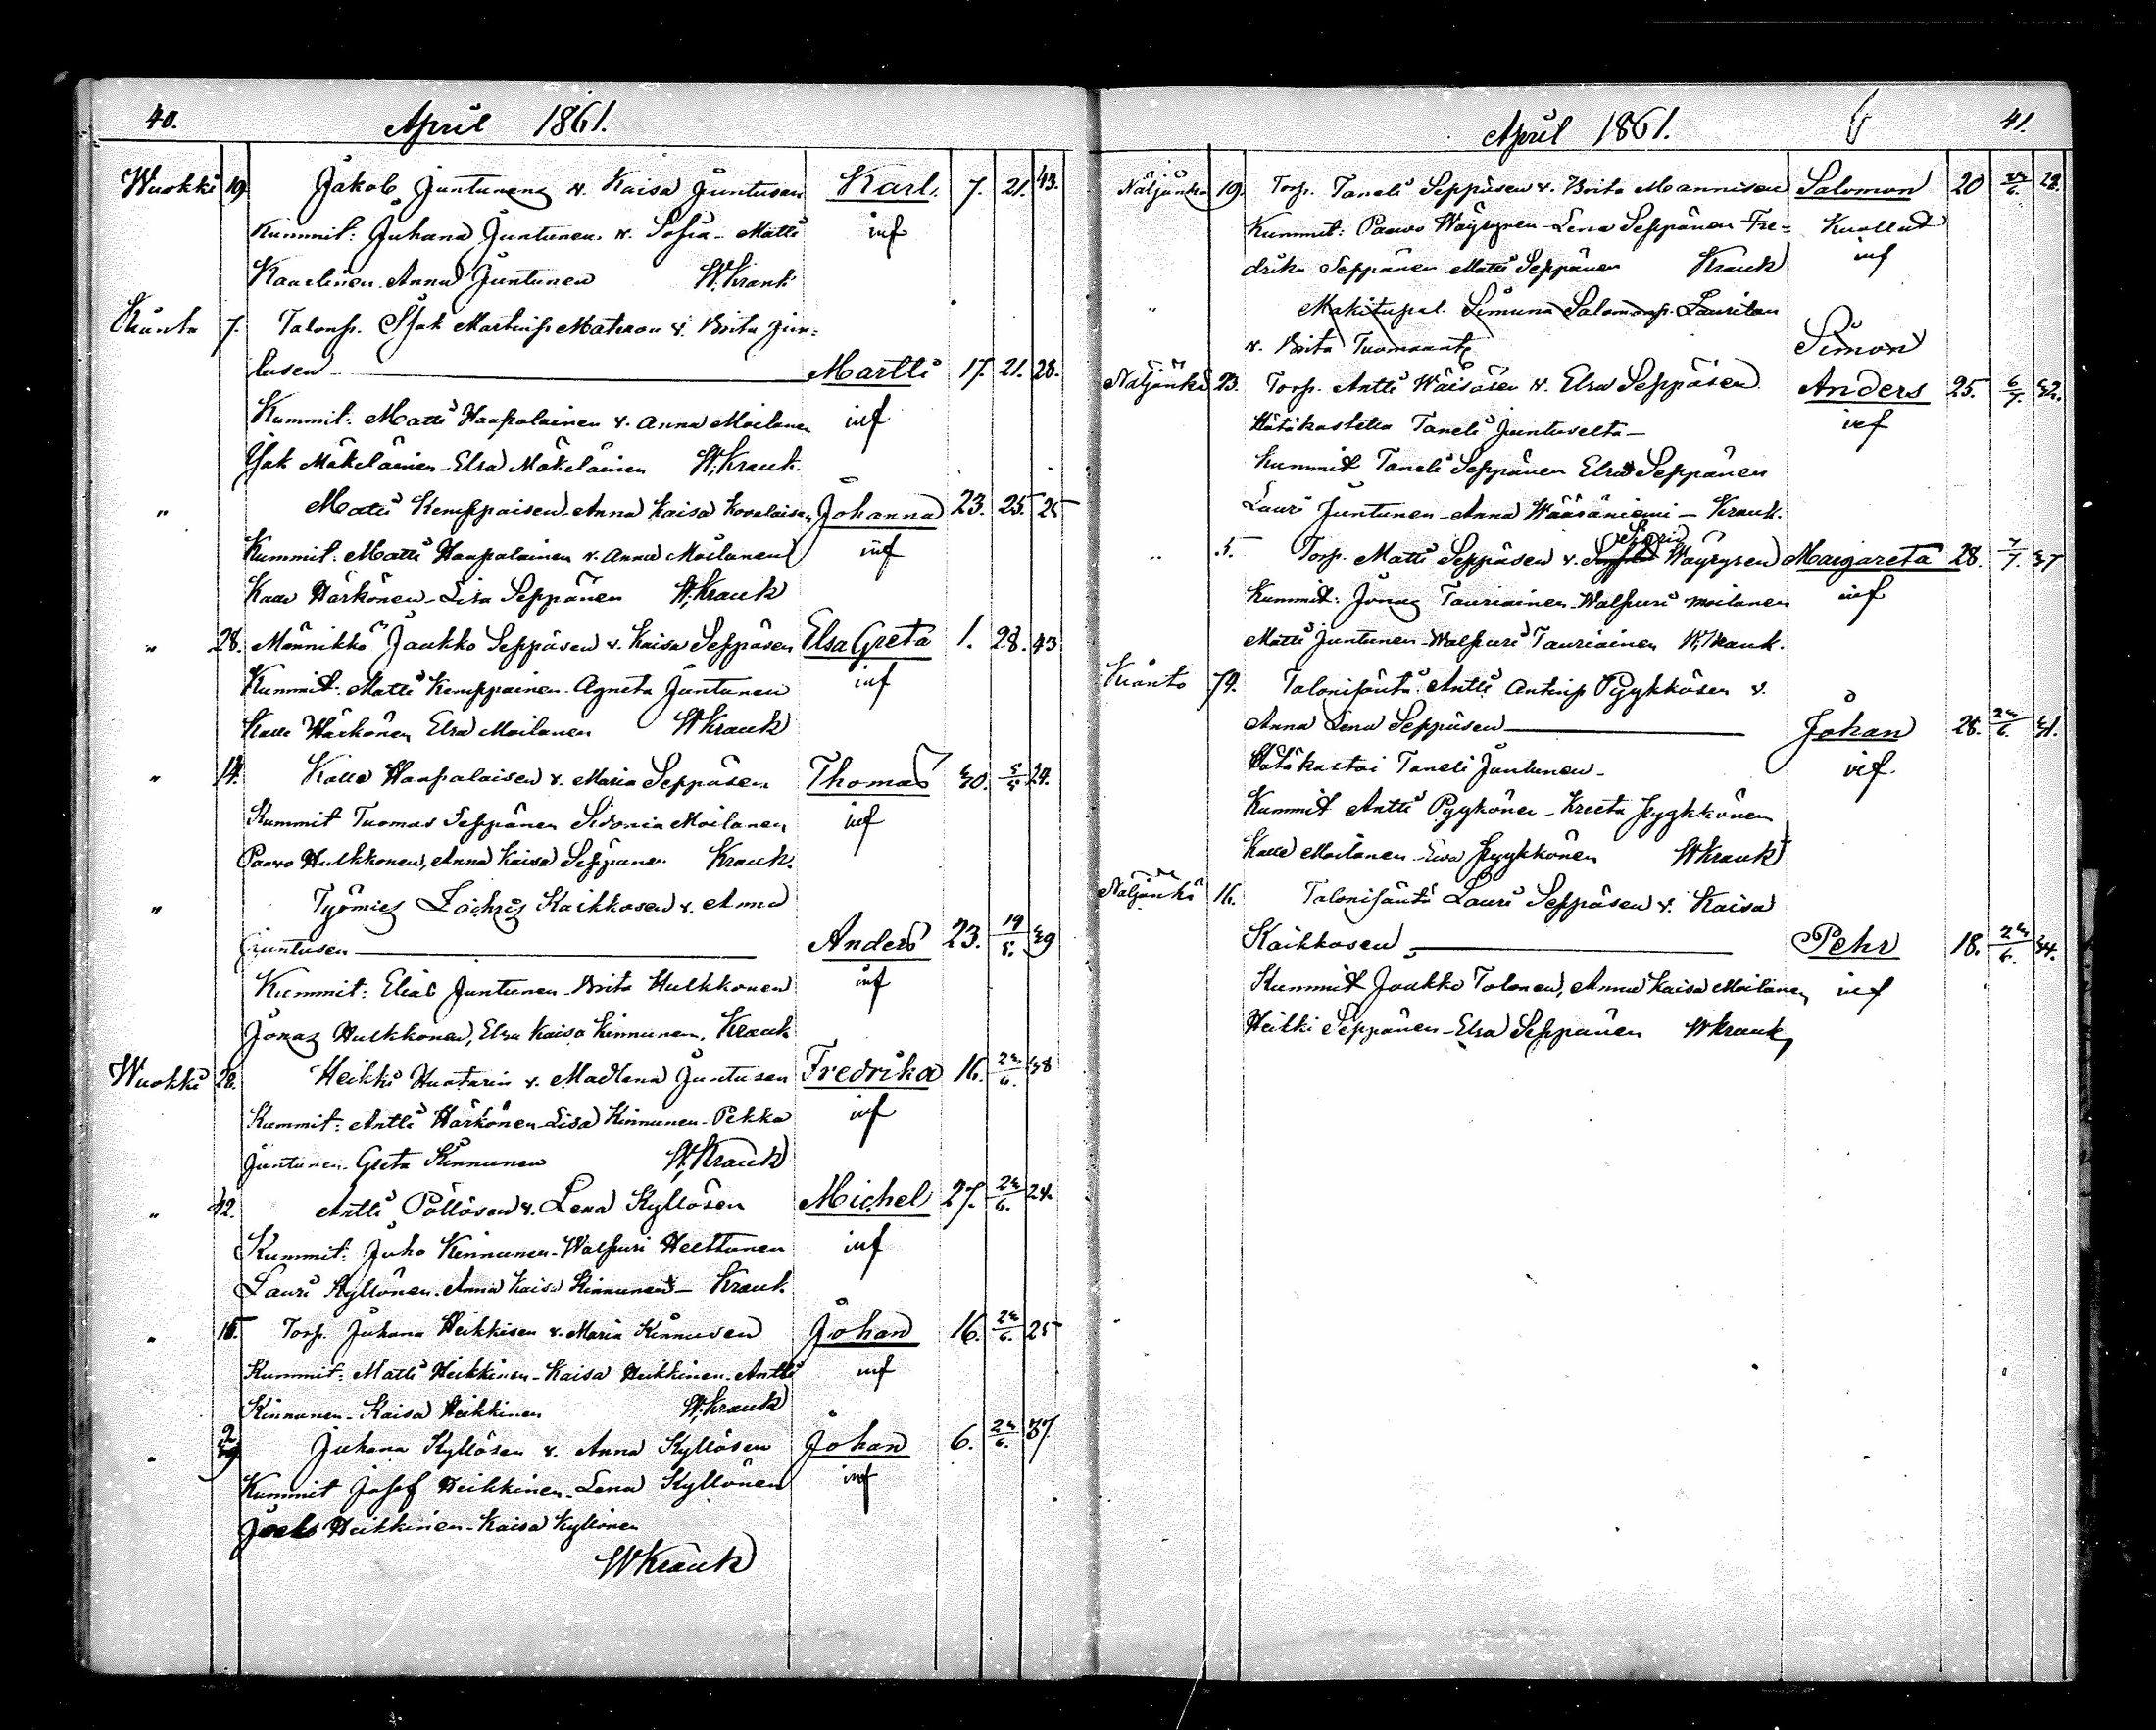 40.
April 1861.
Wuokki 19. Jakob Juntunens v. Kaisa Juntusen Karl. 7. 21. 43.
Kummit: Juhana Juntunen v. Sofia - Matti inf
Kaarlinen Anna Juntunen W. Krank
Kianta 7. Talonp. Isak Martinp Matson v. Brita Jun-
tusen Martti 17. 21. 28.
Kummit: Matti Haapalainen v. Anna Moilanen inf
Isak Mäkeläinen - Elsa Mäkeläinen W. Krank.
" Matti Kemppaisen Anna Kaisa Kovalaisen Johanna 23. 25 25
Kummit: Matti Haapalainen v. Anna Moilanen inf
Kalle Härkönen - Lisa Seppänen W. Krank
" 28. Männikkö Jaukko Seppäsen v. Kaisa Seppäsen Elsa Greta 1. 28. 43
Kummit: Matti Kemppainen - Agneta Juntunen inf
Kalle Härkönen Elsa Moilanen W Krank
" 14. Kalle Haapalaisen v. Maria Seppäsen Thomas 30. 5/5 24.
Kummit Tuomas Seppänen Sidonia Moilanen inf
Paavo Hulkkonen, Anna Kaisa Seppänen Krank.
" Työmies Zachris Kaikkosen v. Anna
Juntusen Anders 23. 19/5. 39
Kummit: Elias Juntunen - Brita Hulkkonen inf
Jonas Hulkkonen, Elsa Kaisa Kinnunen. Krank
Wuokki 28. Heikki Huotarin v. Madlena Juntusen Fredrika 16. 23/6. 38
Kummit: Antti Härkönen - Lisa Kinnunen - Pekka inf
Juntunen - Greta Kinnunen W. Krank
" 42. Antti Pöllösen v. Lena Kyllösen Michel 27. 23/6. 24.
Kummit: Juho Kinnunen - Walpuri Heittunen inf
Lauri Kyllönen - Anna Kaisa Kinnunen - Krank.
" 18. Torp. Juhana Heikkisen v. Maria Kinnusen Johan 16. 23/6. 25
Kummit: Matti Heikkinen - Kaisa Heikkinen - Antti inf
Kinnunen - Kaisa Heikkinen W. Krank
" Juhana Kyllösen v. Anna Kyllösen Johan 6. 23/6. 37.
Kummit Josef Heikkinen - Lena Kyllönen inf
Joels Heikkinen - Kaisa Kyllönen
W Krank
April 1861. 41.
Näljänkä 19. Torp. Taneli Seppäsen v. Brita Mannisen Salomon 20 23/6. 28.
Kummit: Paavo Wäyrynen - Lena Seppänen Fre- Kuollut
drika Seppänen Matti Seppänen Krank inf
" Makitupal. Simuna Salomonp. Lauritan
v. Brita Tuomaant Simon
Näljänkä 23. Torp. Antti Wäisäsen v. Elsa Seppäsen Anders 25. 6/7. 32.
Hätäkastettu Taneli Juntuselta - inf
Kummit Taneli Seppänen Elsa Seppänen
Lauri Juntunen - Anna Wääräniemi - Krank.
" 5. Torp. Matti Seppäsen v. Wäyrysen Margareta 28. 7/7. 37
Kummit: Jonas Tauriainen - Walpuri Moilanen inf
Matti Juntunen - Walpuri Tauriainen W. Krank.
Kianta 74. Talonisäntä Antti Antinp Pyykkösen v.
Anna Lena Seppäsen Johan 28. 23/6. 31.
Hätäkastoi Taneli Juntunen - inf.
Kummit Antti Pyykönen - Kreeta Pyykkönen
Kalle Moilanen - Ewa Pyykkönen W Krank
Näljänkä 16. Talonisäntä Lauri Seppäsen v. Kaisa
Kaikkosen Pehr 18. 23/6. 34.
Kummit Jaukko Tolonen, Anna Kaisa Moilanen inf
Heikki Seppänen - Elsa Seppänen W Krank